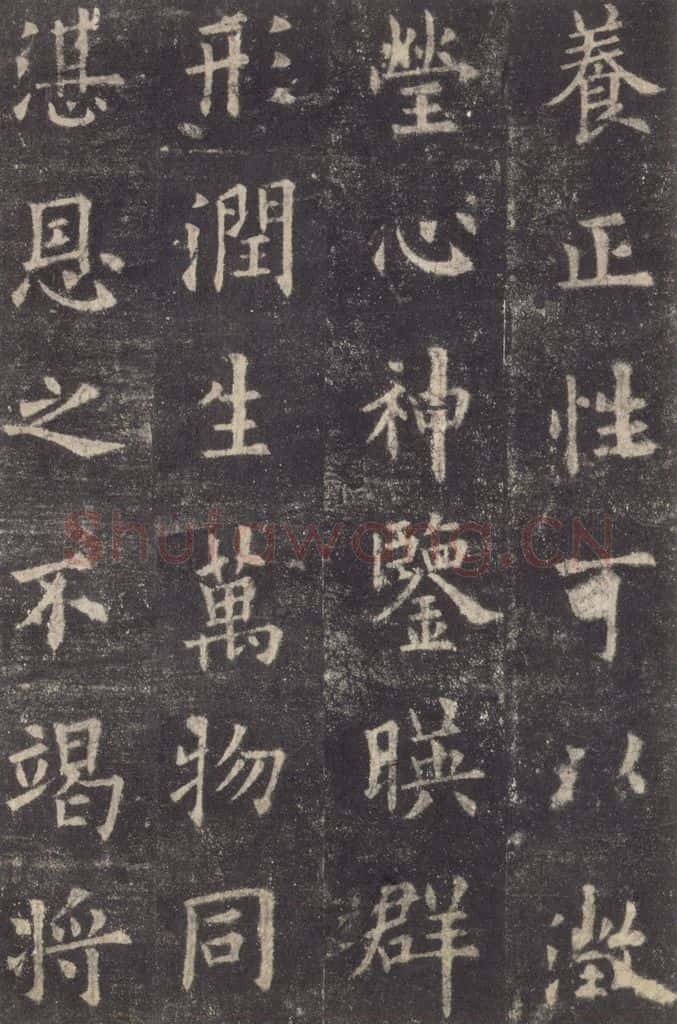 養正性可以澂
瑩心神鑒暎群
形潤生萬物同
湛恩之不竭将
Shufawang.CN